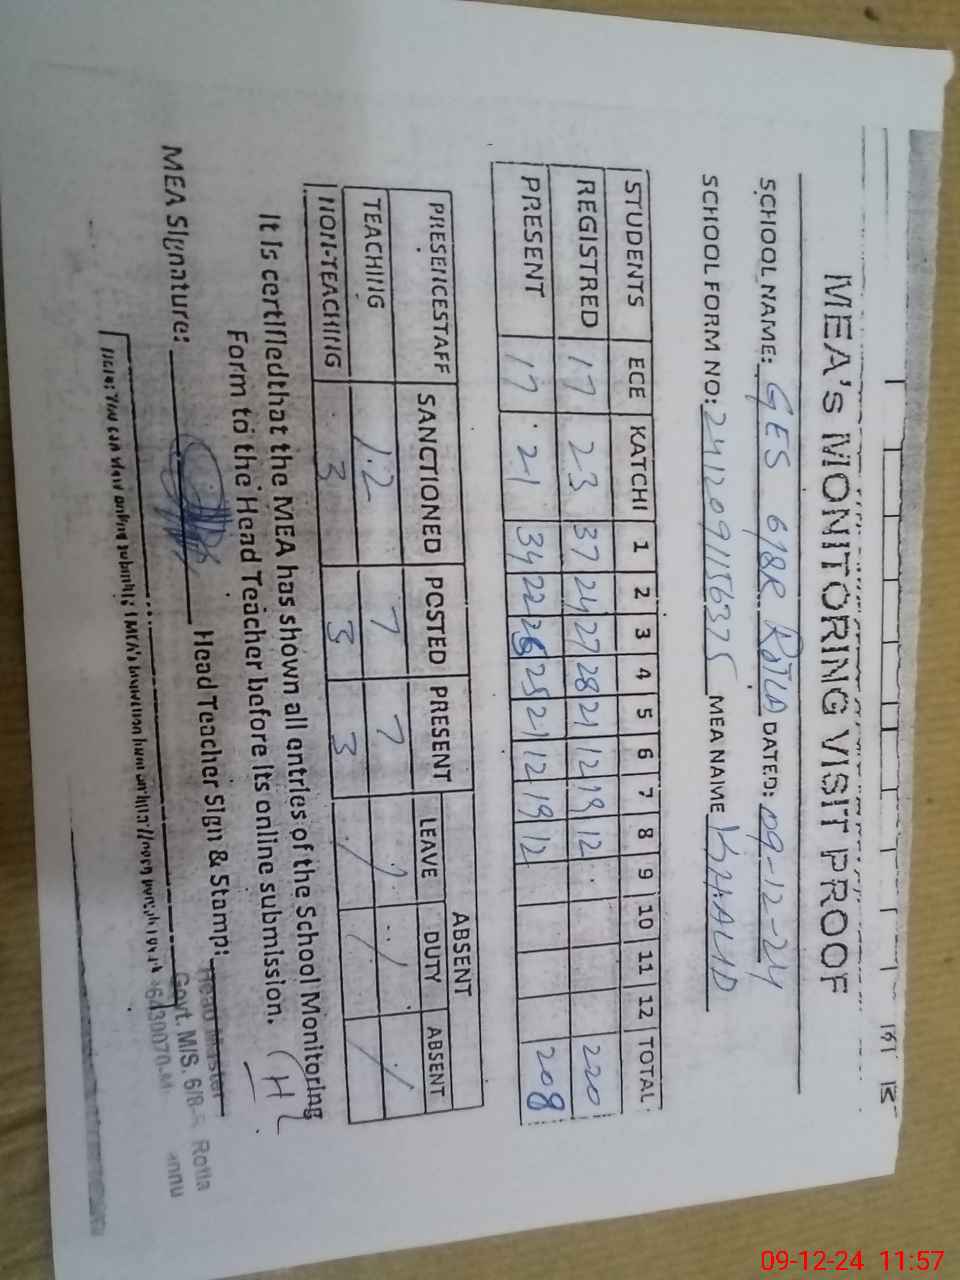 MEA'S MONITORING VISIT PROOF
SCHOOL NAME: GES 618R Rotla DATED: 09-12-24
SCHOOL FORM NO: 2412091156375 MEA NAME KHALID
STUDENTS ECE KATCHI 1 2 3 4 5 6 7 8 9 10 11 12 TOTAL
REGISTRED 17 23 37 24 27 28 21 12 19 12 220
PRESENT 17 21 34 22 25 21 12 19 12 208
PRESENCESTAFF SANCTIONED POSTED PRESENT ABSENT
LEAVE DUTY ABSENT
TEACHING 12 7 7 / / /
NON-TEACHING 3 3 3 / /
It is certifiedthat the MEA has shown all entries of the School Monitoring
Form to the Head Teacher before its online submission.
MEA Signature: Head Teacher Sign & Stamp:
Head Master
Govt. M/S. 618-R Rotla
Note: You can view online
09-12-24 11:57